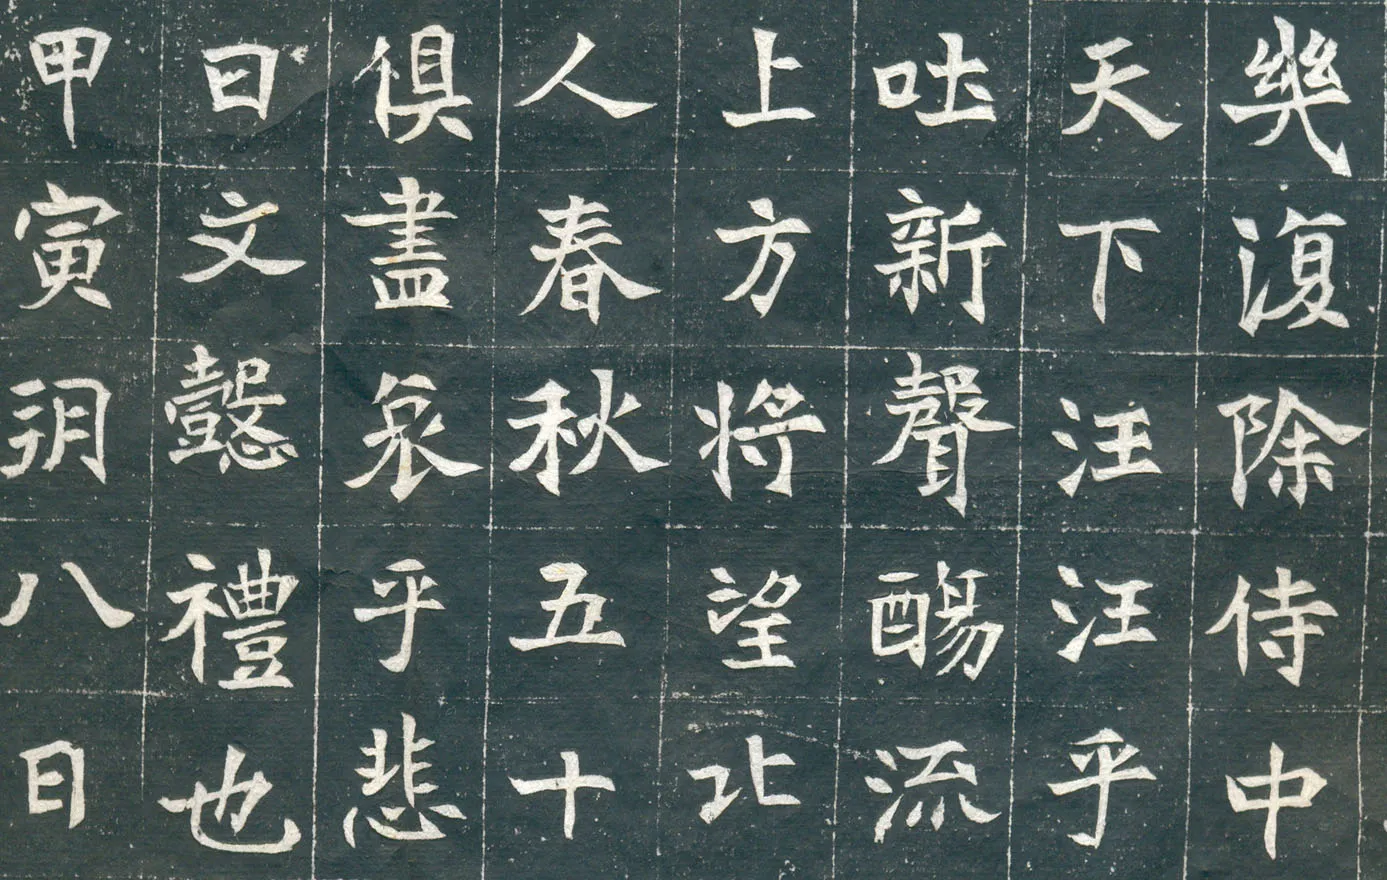 幾復除侍中
天下汪汪乎
吐新聲流
上方將望北
人春秋五十
俱盡哀乎悲
曰文懿禮也
甲寅朔八日